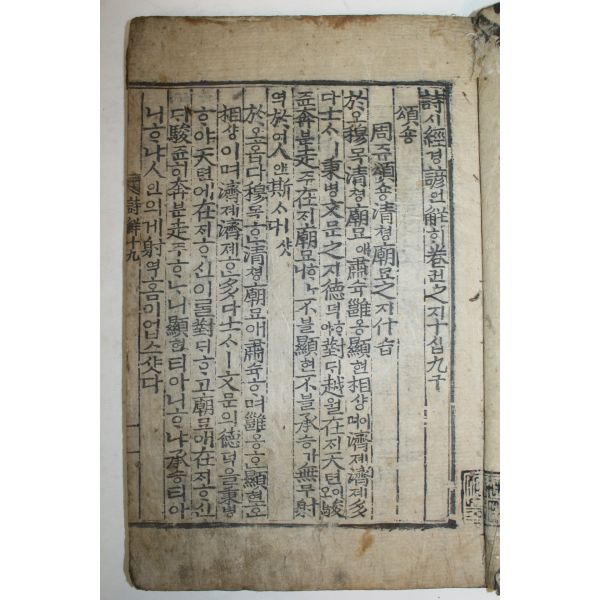 詩시經경諺언解ᄒᆡ卷권之지十십九구
頌숑
周쥬頌숑淸쳥廟묘之지什습
於오穆목淸쳥廟묘애肅슉雝옹顯현相샹이며濟졔濟졔多
다士ᄉᆞㅣ秉병文문之지德덕ᄒᆞ야對ᄃᆡ越월在ᄌᆡ天텬이오駿
쥰奔분走주在ᄌᆡ廟묘ᄒᆞᄂᆞ니不블顯현不블承승가無무射
역於어人인斯ᄉᆞㅣ샷다
於오홉다穆목ᄒᆞᆫ淸쳥廟묘애肅슉ᄒᆞ며雝옹ᄒᆞᆫ顯현ᄒᆞᆫ
相샹이며濟졔濟졔ᄒᆞᆫ多다士ᄉᆞㅣ文문의德덕을秉병
ᄒᆞ야天텬에在ᄌᆡᄒᆞ신이를對ᄃᆡᄒᆞ고廟묘애在ᄌᆡᄒᆞ신
ᄃᆡ駿쥰히奔분走주ᄒᆞᄂᆞ니顯현티아니ᄒᆞ냐承승티아
니ᄒᆞ냐人인의게射역홈이업스샷다
詩解十九